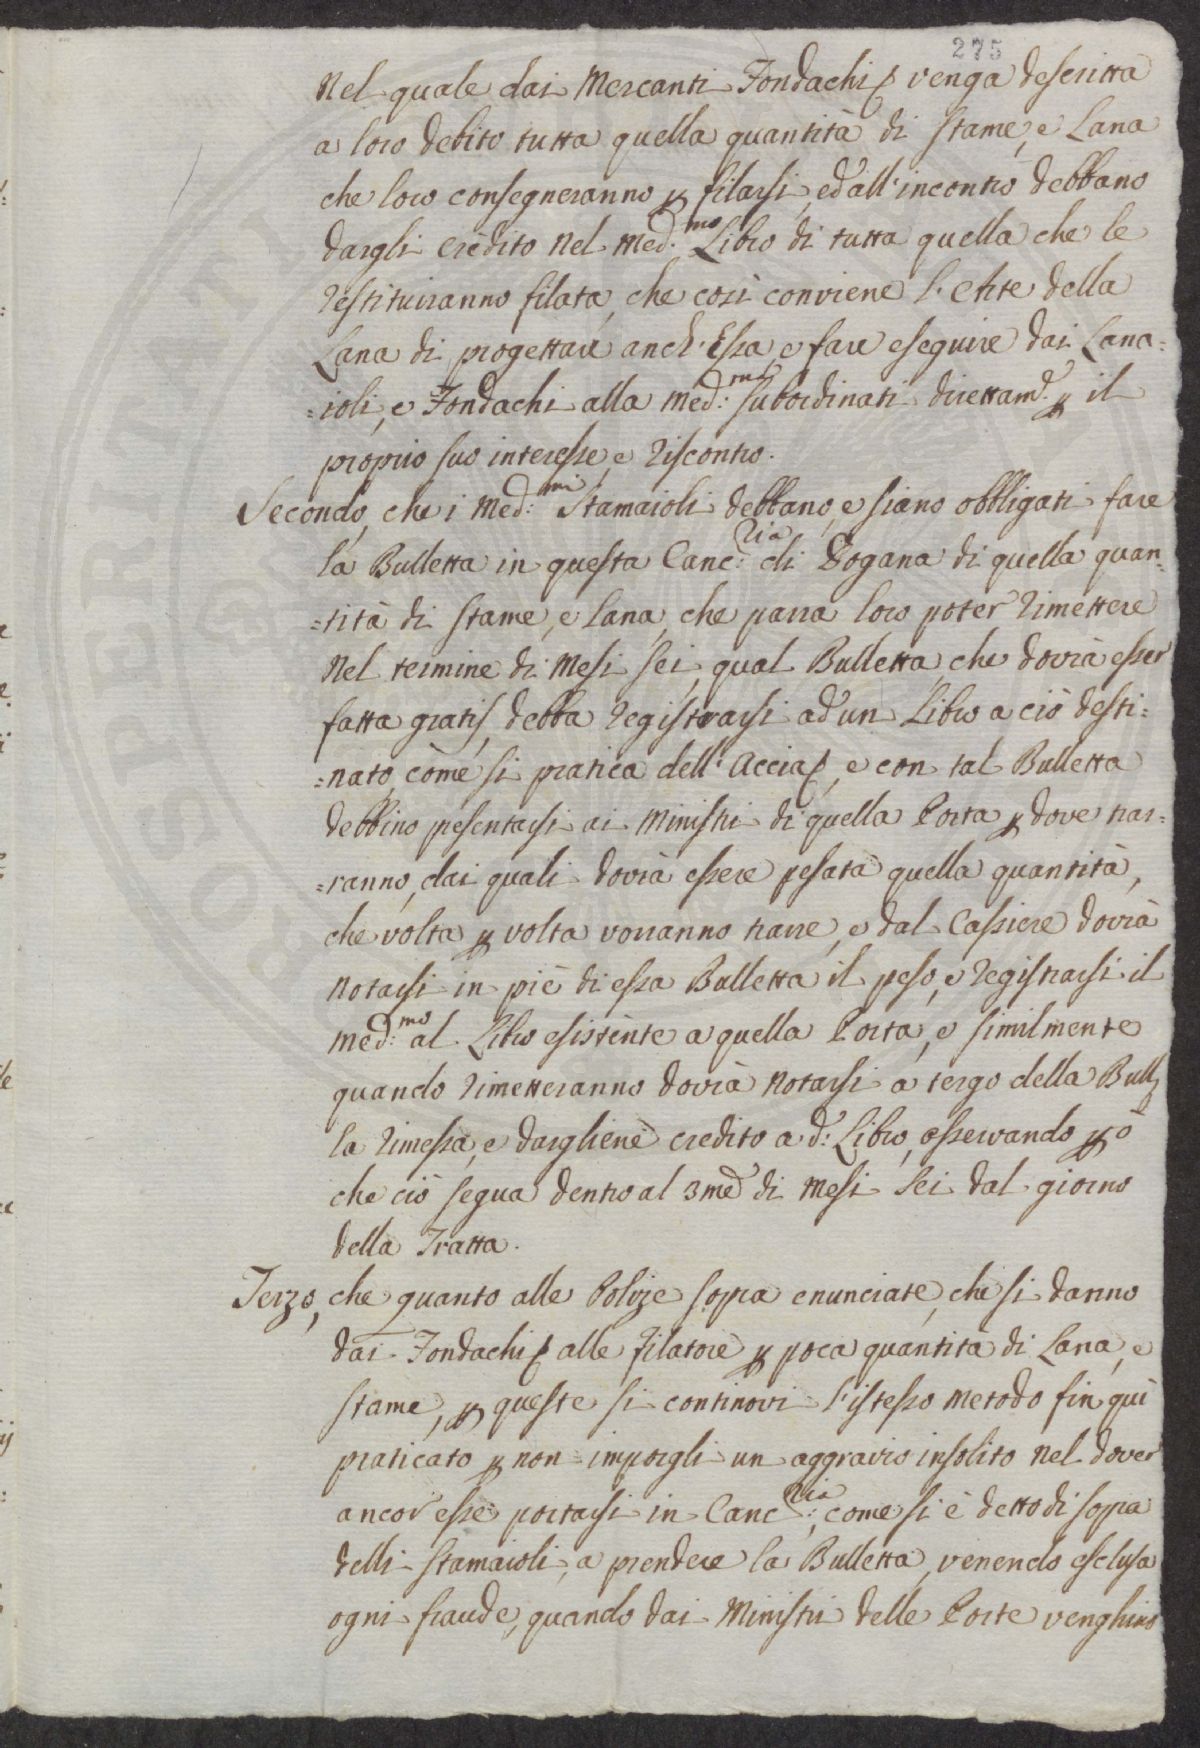 275
Nel quale dai Mercanti Fondachi venga descritta
a loro debito tutta quella quantità di stame, e Lana
che loro consegneranno p filarsi, ed all'incontro debbano
dargli credito nel med:mo Libro di tutta quella che le
restituiranno filata, che così conviene l'Arte della
Lana di progettare anch'Essa, e fare eseguire dai Lana=
=ioli, e Fondachi alla med:ma subordinati direttam.e p il
proprio suo interesse, e riscontro.
Secondo, che i Med:mi Stamaioli debbano, e siano obbligati fare
la Bulletta in questa Canc:ria di Dogana di quella quan=
=tità di stame, e lana, che parrà loro poter rimettere
nel termine di Mesi sei, qual Bulletta, che dovrà esser
fatta gratis, debba registrarsi ad un Libro a ciò desti=
=nato, come si pratica dell'Accia, e con tal Bulletta
debbino pesentarsi ai Ministri di quella Porta p dove trar=
=ranno, dai quali dovrà essere pesata quella quantità,
che volta p volta vorranno trarre, e dal Cassiere dovrà
notarsi in piè di essa Bulletta il peso, e registrarsi il
med:mo al Libro esistente a quella Porta, e similmente
quando rimetteranno dovrà notarsi a tergo della Bull
la rimessa, e darglienè credito a d: Libro, osservando pò
che ciò segua dentro al 3mē di Mesi sei dal giorno
della Tratta.
Terzo, che quanto alle Polize sopra enunciate, che si danno
dai Fondachi alle filatore p poca quantità di Lana, e
stame, p queste si continovi l'istesso metodo fin quì
praticato p non imporgli un aggravio insolito nel dover
ancor esse portarsi in Canc:ria, come si è detto di sopra
delli Stamaioli, a prendere la Bulletta, venendo esclusa
ogni fraude, quando dai Ministri delle Porte venghino